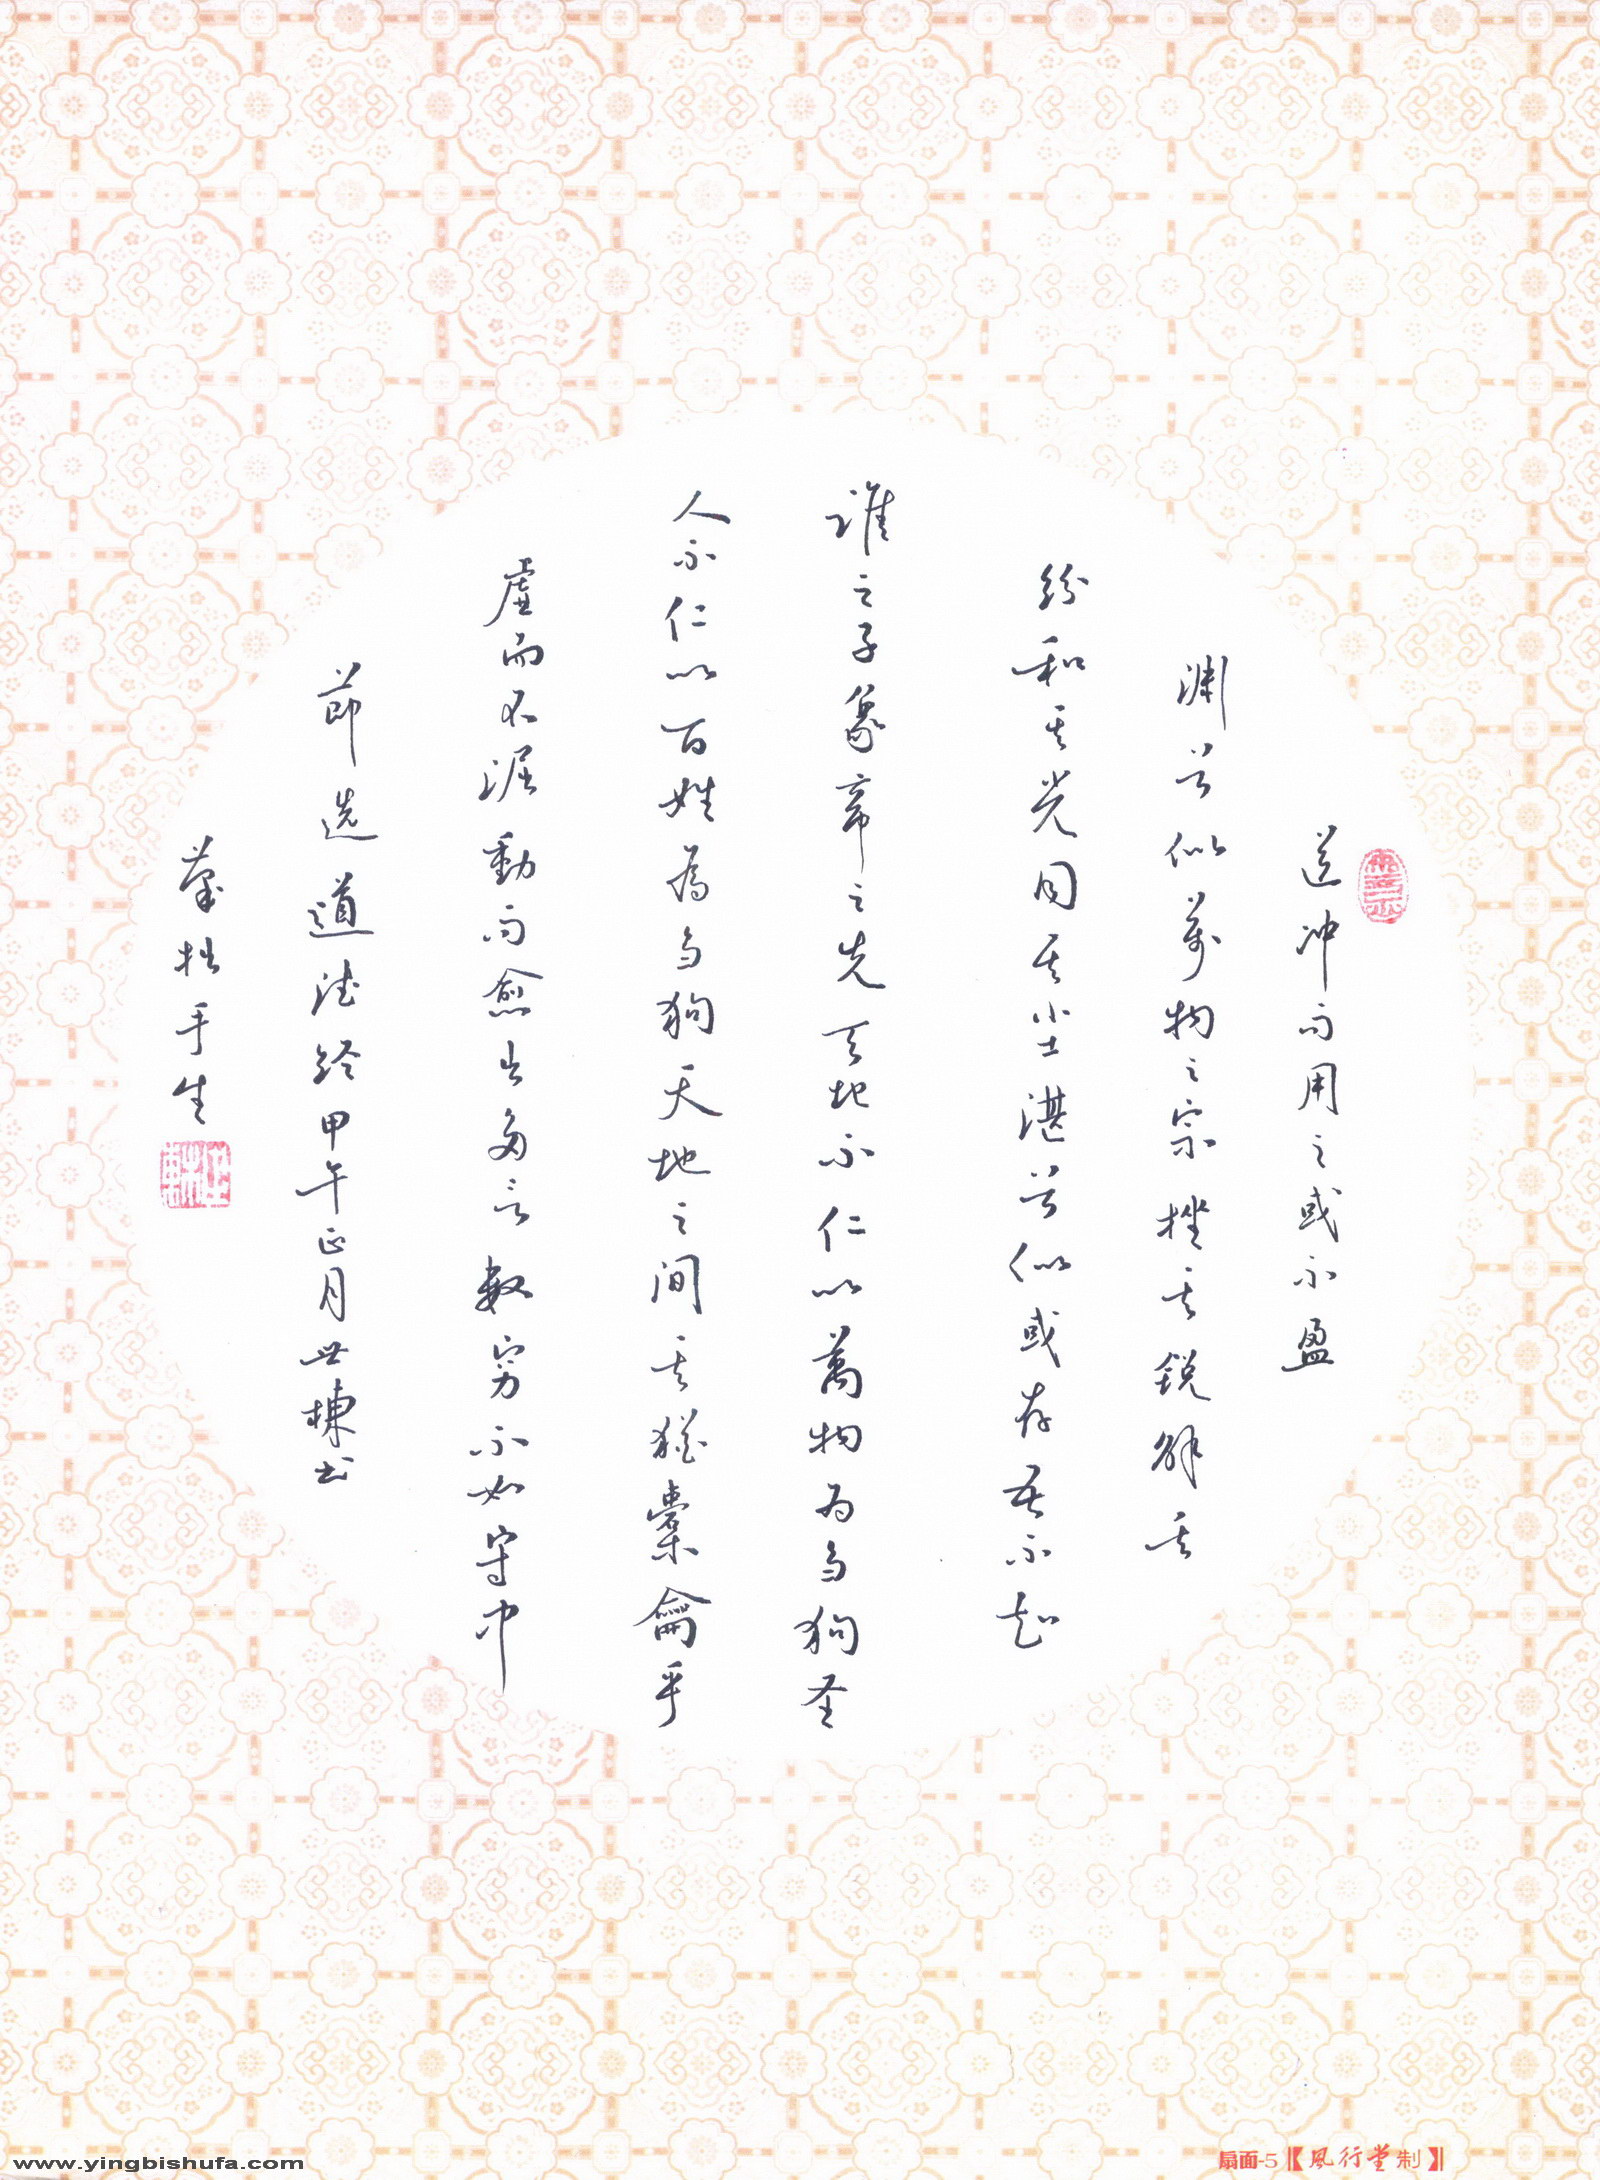 道冲而用之或不盈
渊兮似萬物之宗挫其锐解其
纷和其光同其尘湛兮似或存吾不知
谁之子象帝之先天地不仁以萬物为刍狗圣
人不仁以百姓為刍狗天地之间其猶橐龠乎
虚而不淈動而愈出多言数穷不如守中
节选道德经甲午正月世棟书
拙手生
扇面-5【風行堂制】
www.yingbishufa.com